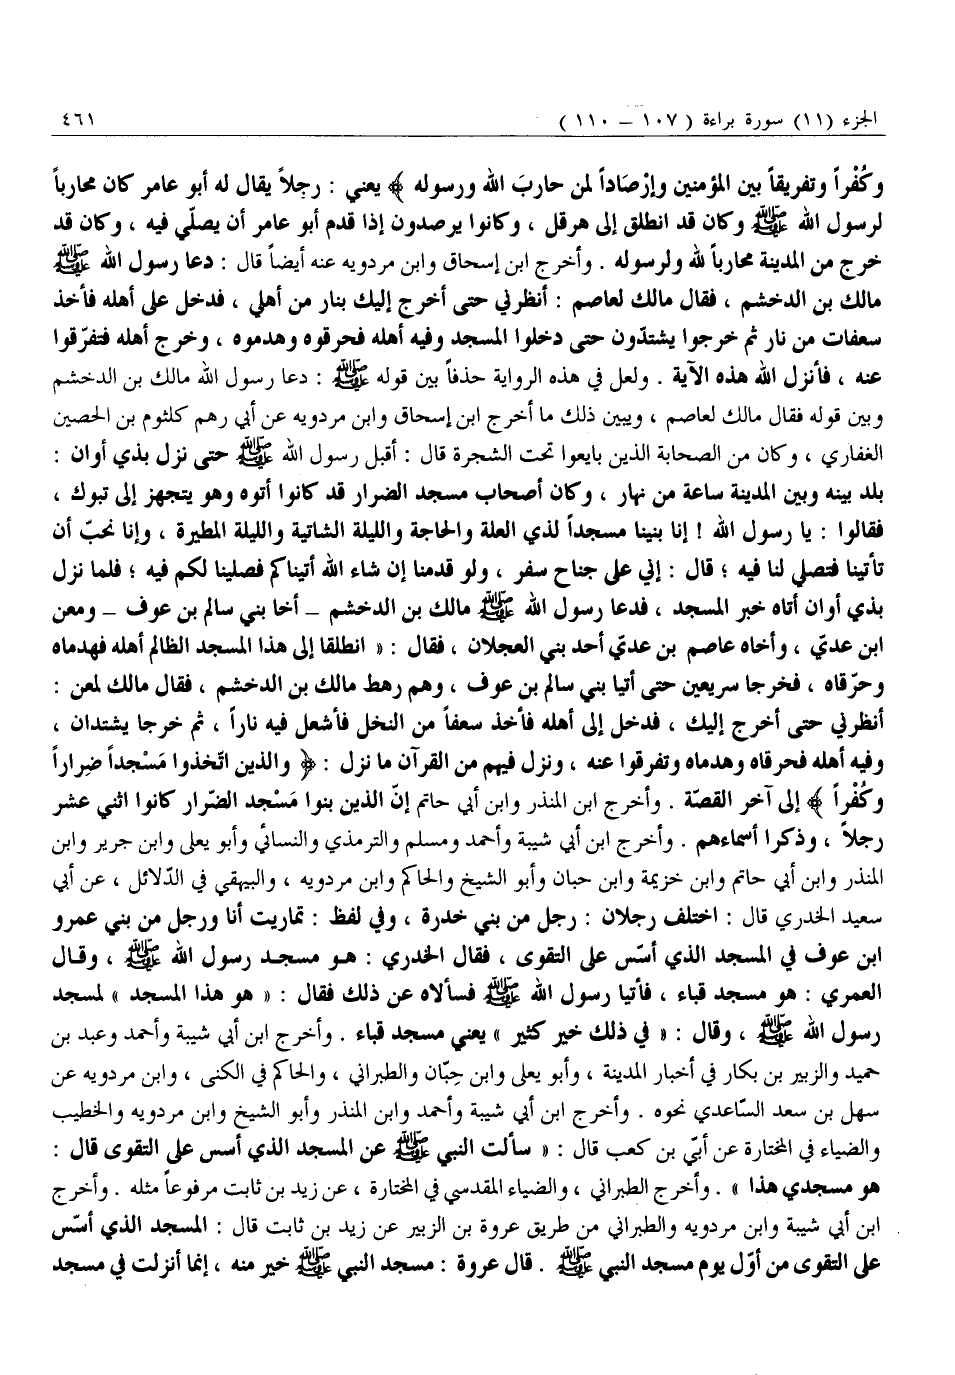 الجزء (١١) سورة براءة ( ١٠٧ – ١١٠ ) ٤٦١
وكُفْراً وتفريقاً بين المؤمنين وإرْصَاداً لمن حاربَ الله ورسوله ﴾ يعني : رجلاً يقال له أبو عامر كان محارباً
لرسول الله ﷺ وكان قد انطلق إلى هرقل ، وكانوا يرصدون إذا قدم أبو عامر أن يصلّي فيه ، وكان قد
خرج من المدينة محارباً لله ولرسوله . وأخرج ابن إسحاق وابن مردويه عنه أيضاً قال : دعا رسول الله ﷺ
مالك بن الدخشم ، فقال مالك لعاصم : أنظرني حتى أخرج إليك بنار من أهلي ، فدخل على أهله فأخذ
سعفات من نار ثم خرجوا يشتدّون حتى دخلوا المسجد وفيه أهله فحرقوه وهدموه ، وخرج أهله فتفرّقوا
عنه ، فأنزل الله هذه الآية . ولعل في هذه الرواية حذفاً بين قوله ﷺ : دعا رسول الله مالك بن الدخشم
وبين قوله فقال مالك لعاصم ، ويبين ذلك ما أخرج ابن إسحاق وابن مردويه عن أبي رهم كلثوم بن الحصين
الغفاري ، وكان من الصحابة الذين بايعوا تحت الشجرة قال : أقبل رسول الله ﷺ حتى نزل بذي أوان :
بلد بينه وبين المدينة ساعة من نهار ، وكان أصحاب مسجد الضرار قد كانوا أتوه وهو يتجهز إلى تبوك ،
فقالوا : يا رسول الله ! إنا بنينا مسجداً لذي العلة والحاجة والليلة الشاتية والليلة المطيرة ، وإنا نحبّ أن
تأتينا فتصلي لنا فيه ؛ قال : إني على جناح سفر ، ولو قدمنا إن شاء الله أتيناكم فصلينا لكم فيه ؛ فلما نزل
بذي أوان أتاه خبر المسجد ، فدعا رسول الله ﷺ مالك بن الدخشم – أخا بني سالم بن عوف – ومعن
ابن عديّ ، وأخاه عاصم بن عديّ أحد بني العجلان ، فقال : « انطلقا إلى هذا المسجد الظالم أهله فهدماه
وحرّقاه ، فخرجا سريعين حتى أتيا بني سالم بن عوف ، وهم رهط مالك بن الدخشم ، فقال مالك لمعن :
أنظرني حتى أخرج إليك ، فدخل إلى أهله فأخذ سعفاً من النخل فأشعل فيه ناراً ، ثم خرجا يشتدان ،
وفيه أهله فحرقاه وهدماه وتفرقوا عنه ، ونزل فيهم من القرآن ما نزل : ﴿ والذين اتّخذوا مَسْجداً ضِراراً
وكُفْراً ﴾ إلى آخر القصّة . وأخرج ابن المنذر وابن أبي حاتم إنّ الذين بنوا مَسْجد الضّرار كانوا اثني عشر
رجلاً ، وذكرا أسماءهم . وأخرج ابن أبي شيبة وأحمد ومسلم والترمذي والنسائي وأبو يعلى وابن جرير وابن
المنذر وابن أبي حاتم وابن خزيمة وابن حبان وأبو الشيخ والحاكم وابن مردويه ، والبيهقي في الدّلائل ، عن أبي
سعيد الخدري قال : اختلف رجلان : رجل من بني خدرة ، وفي لفظ : تماريت أنا ورجل من بني عمرو
ابن عوف في المسجد الذي أسّس على التقوى ، فقال الخدري : هو مسجد رسول الله ﷺ ، وقال
العمري : هو مسجد قباء ، فأتيا رسول الله ﷺ فسألاه عن ذلك فقال : « هو هذا المسجد » لمسجد
رسول الله ﷺ ، وقال : « في ذلك خير كثير » يعني مسجد قباء . وأخرج ابن أبي شيبة وأحمد وعبد بن
حميد والزبير بن بكار في أخبار المدينة ، وأبو يعلى وابن حِبّان والطبراني ، والحاكم في الكنى ، وابن مردويه عن
سهل بن سعد السّاعدي نحوه . وأخرج ابن أبي شيبة وأحمد وابن المنذر وأبو الشيخ وابن مردويه والخطيب
والضياء في المختارة عن أبّي بن كعب قال : « سألت النبي ﷺ عن المسجد الذي أسس على التقوى قال :
هو مسجدي هذا » . وأخرج الطبراني ، والضياء المقدسي في المختارة ، عن زيد بن ثابت مرفوعاً مثله . وأخرج
ابن أبي شيبة وابن مردويه والطبراني من طريق عروة بن الزبير عن زيد بن ثابت قال : المسجد الذي أسّس
على التقوى من أوّل يوم مسجد النبي ﷺ . قال عروة : مسجد النبي ﷺ خير منه ، إنما أنزلت في مسجد